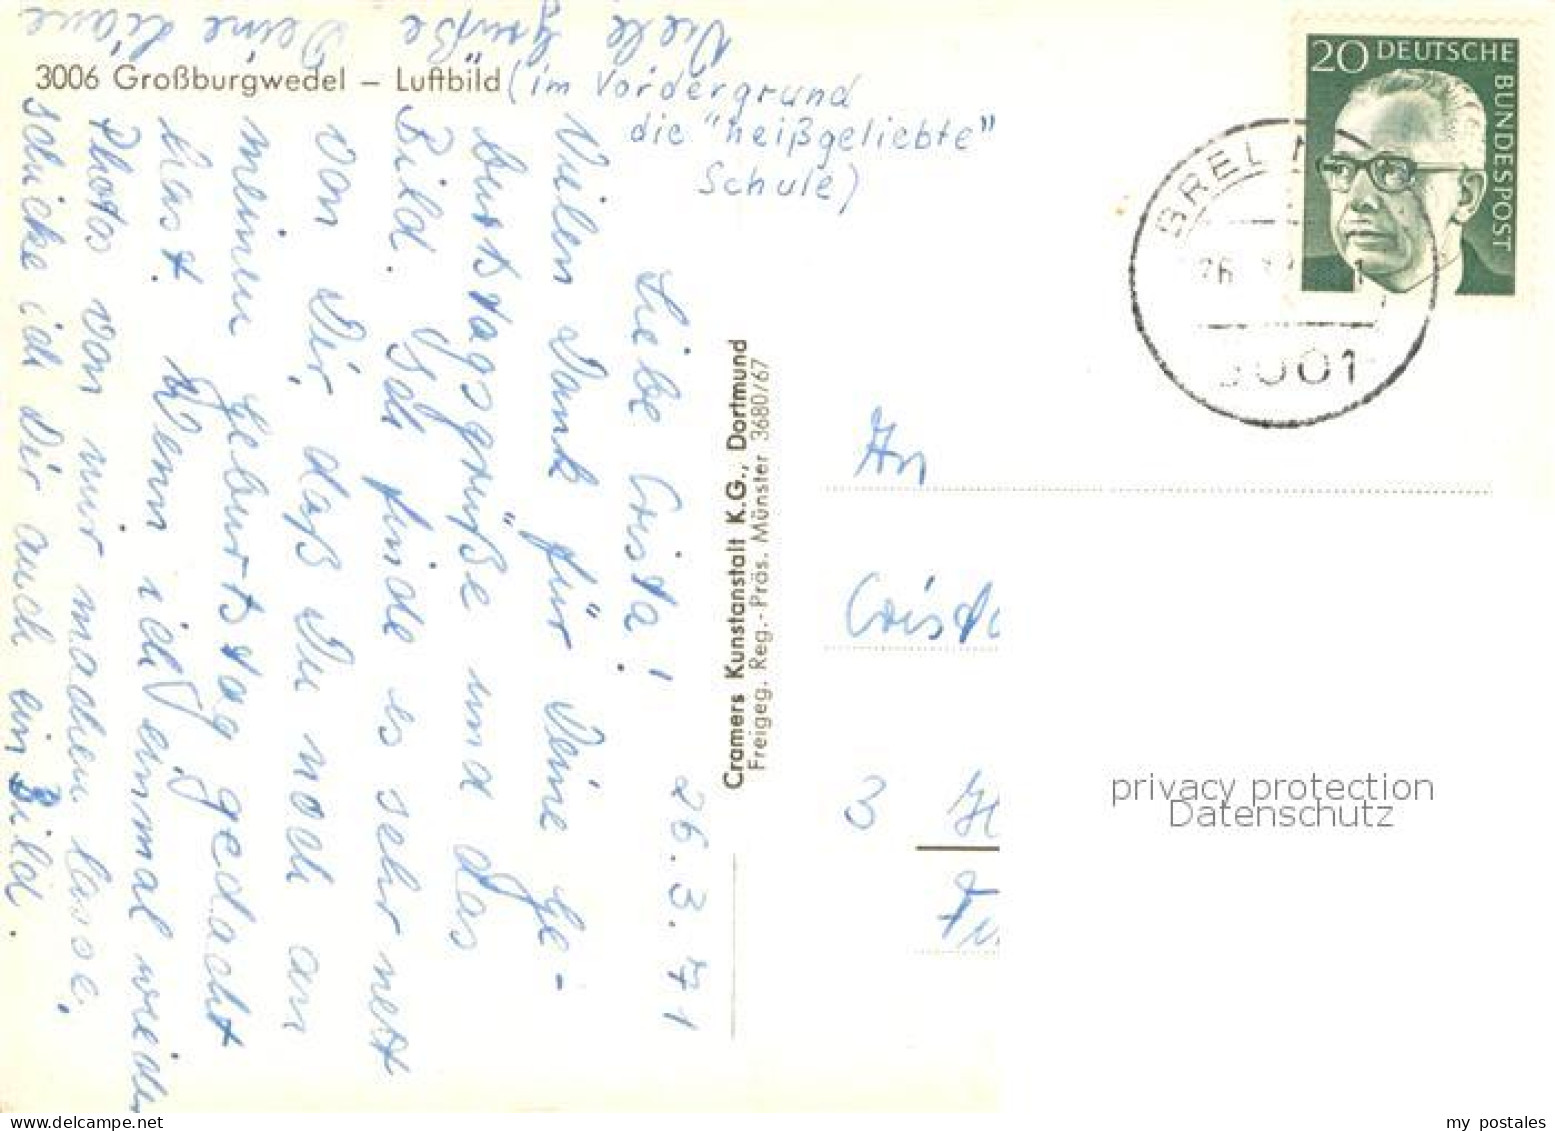 3006 Großburgwedel – Luftbild (im Vordergrund
die "heißgeliebte"
Schule)
26.3.71
Liebe Crista!
Vielen Dank für Deine Ge-
burtstagsgrüße und das
Bild. Ich finde es sehr nett
von Dir, daß Du noch an
meinen Geburtstag gedacht
hast. Wenn ich einmal wieder
Photos von mir machen lasse,
schicke ich Dir auch ein Bild.
Viele Grüße Deine
Cramers Kunstanstalt K.G., Dortmund
Freigeg. Reg.-Präs. Münster 3680/67
20 DEUTSCHE
BUNDESPOST
BREL
26
3001
An
Crist
3
privacy protection
Datenschutz
my postales